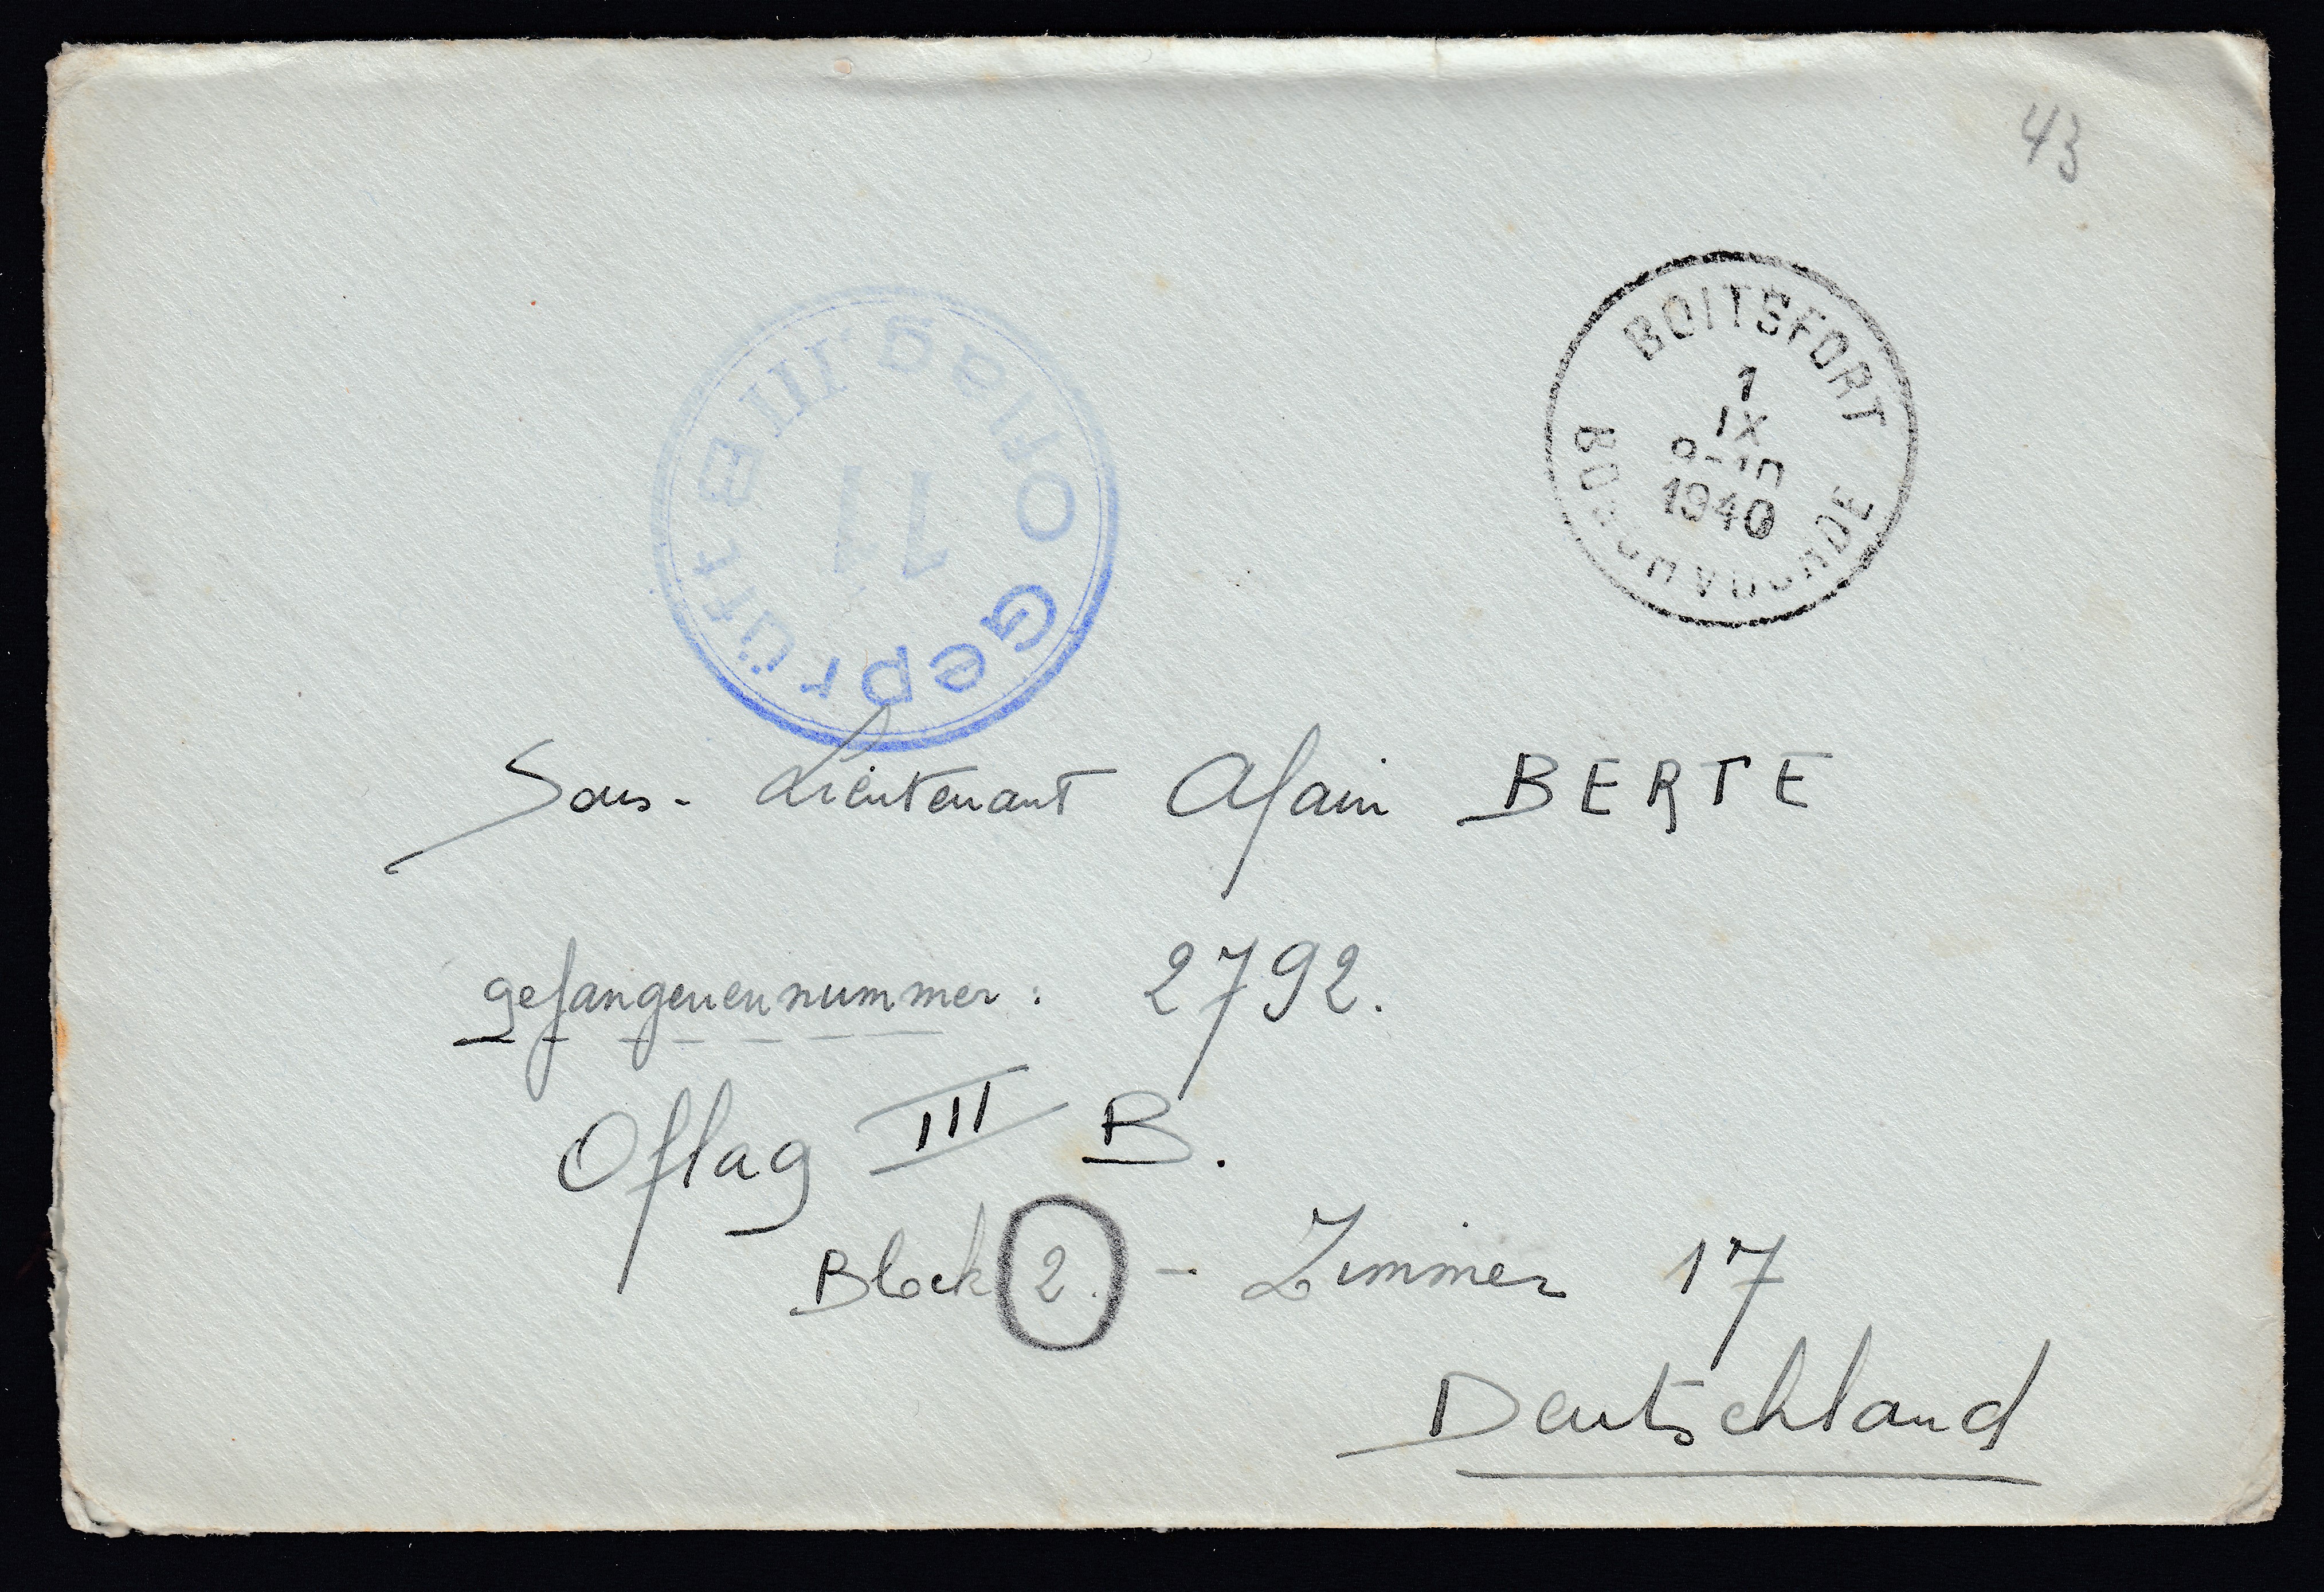 43
BOITSFORT
1
IX
1940
Oflag III B
11
Geprüft
Sous-Lieutenant Alain BERTE
gefangenennummer: 2792.
Oflag III B.
Block 2. - Zimmer 17
Deutschland